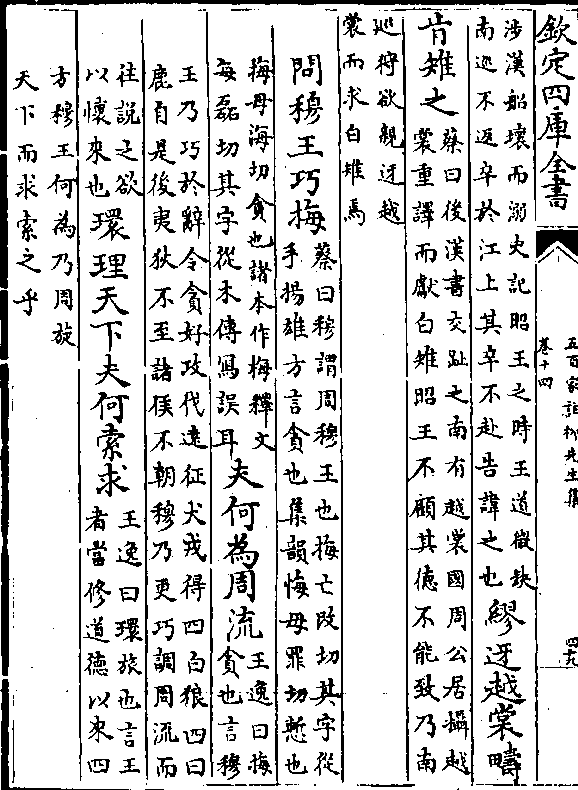 欽定四庫全書
五百家註柳先生集
卷十四
四九
涉漢船壞而溺史記昭王之時王道微缺
南巡不返卒於江上其卒不赴告諱之也繆迓越裳疇
肯雉之蔡曰後漢書交趾之南有越裳國周公居攝越
裳重譯而獻白雉昭王不顧其徳不能致乃南
巡狩欲親迓越
裳而求白雉焉
問穆王巧梅蔡曰穆謂周穆王也梅亡改切其字從
手揚雄方言貪也集韻悔母罪切慙也
梅母海切貪也諸本作梅釋文
每磊切其字從木傳寫誤耳夫何為周流王逸曰梅
貪也言穆
王乃巧於辭令貪好攻伐遠征犬戎得四白狼四白
鹿自是後夷狄不至諸侯不朝穆乃更巧調周流而
往說之欲
以懷來也環理天下夫何索求王逸曰環旋也言王
者當修道德以來四
方穆王何為乃周旋
天下而求索之乎